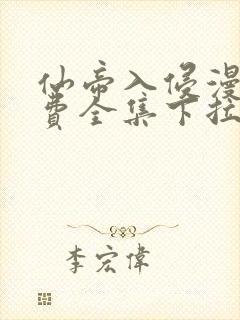 仙帝入侵漫
费全集下拉
李宏偉